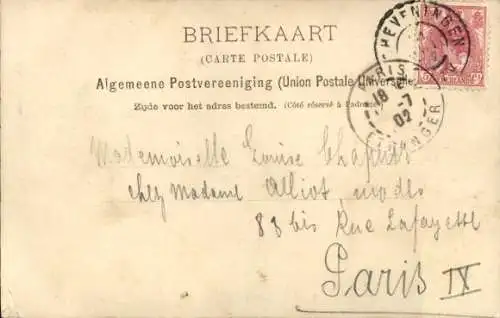 BRIEFKAART
(CARTE POSTALE)
Algemeene Postvereeniging (Union Postale Universelle)
Zijde voor het adres bestemd. (Côté réservé à l'adresse)
HEVENINGEN
PARIS
18
7
02
ETRANGER
Mademoiselle Louise Chapuis
chez Madame Alliot, modes
83 bis Rue Lafayette
Paris IX